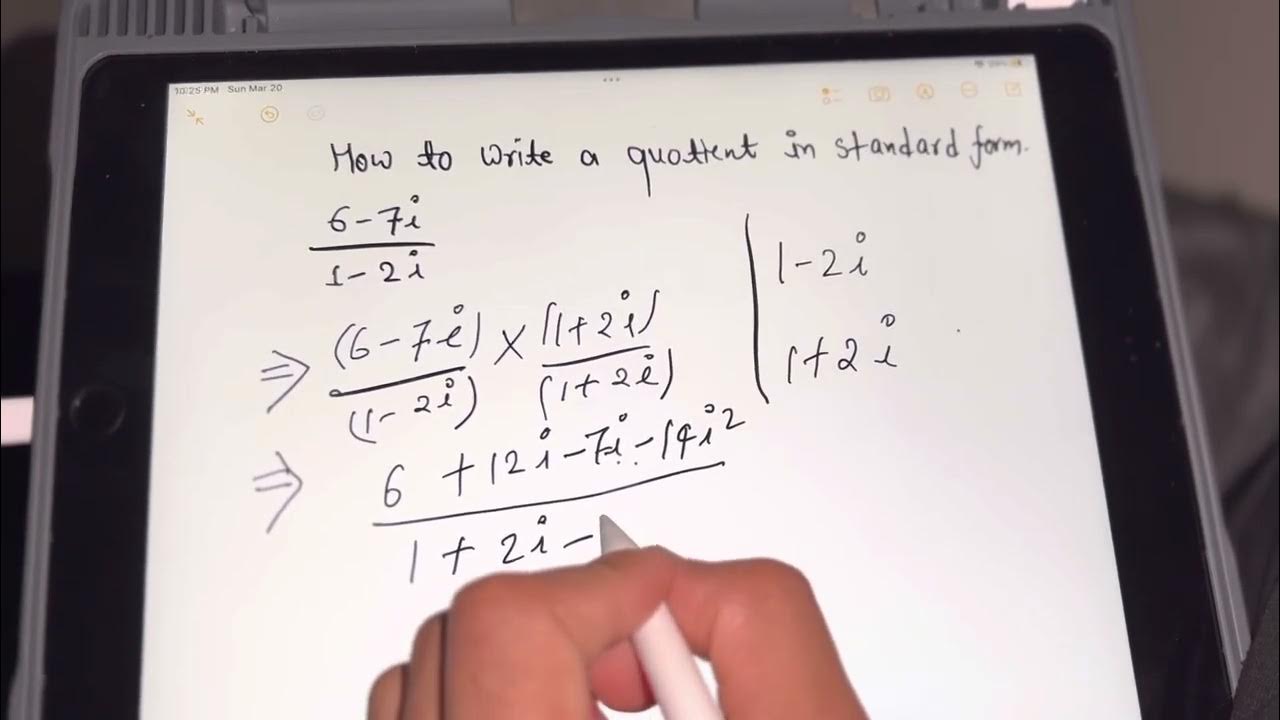 10:25 PM Sun Mar 20
How to write a quotient in standard form.
6-7i
1-2i
⇒ (6-7i) × (1+2i)
(1-2i) (1+2i)
⇒ 6 +12i-7i-14i²
1 + 2i -
1-2i
1+2i